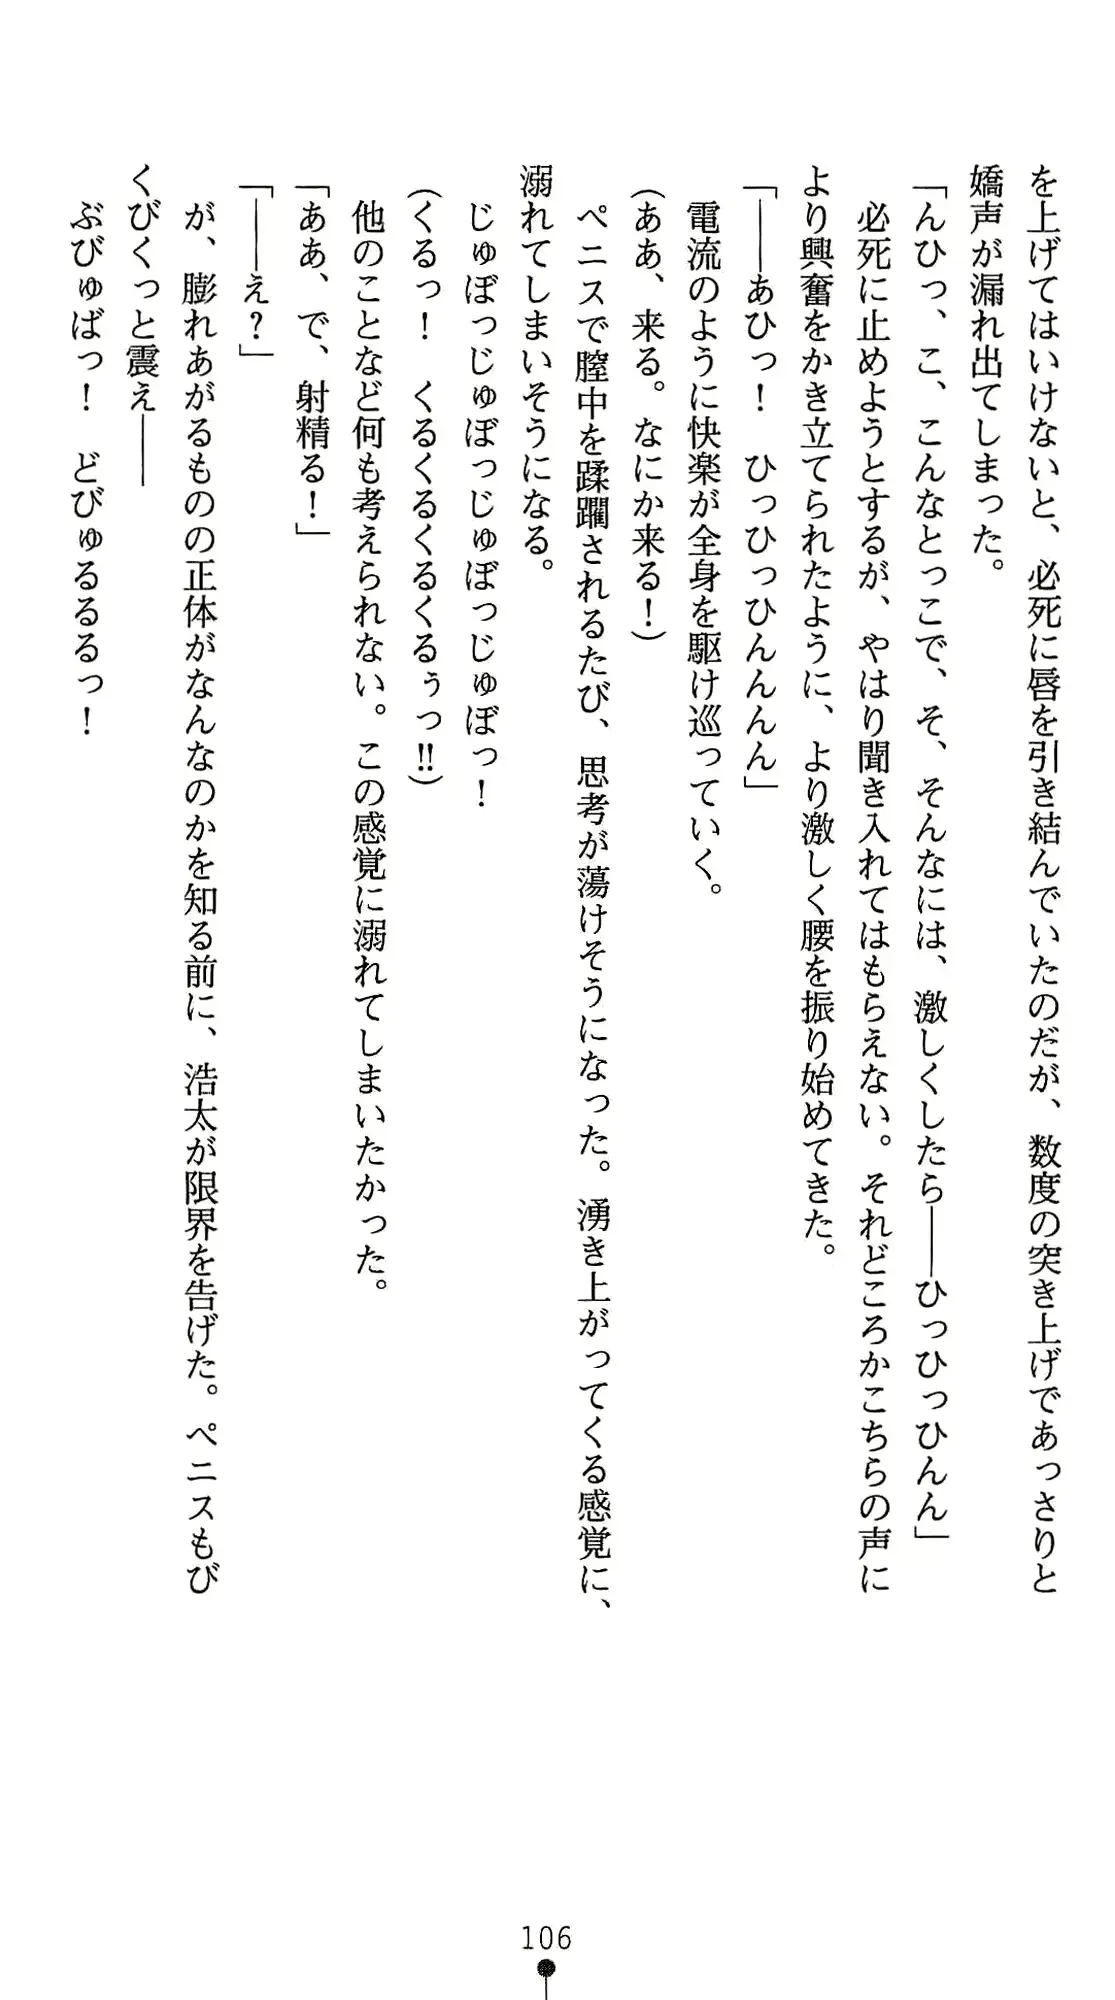 を上げてはいけないと、必死に唇を引き結んでいたのだが、数度の突き上げであっさりと
嬌声が漏れ出てしまった。
「んひっ、こ、こんなとっこで、そ、そんなには、激しくしたら――ひっひっひんん」
必死に止めようとするが、やはり聞き入れてはもらえない。それどころかこちらの声に
より興奮をかき立てられたように、より激しく腰を振り始めてきた。
「――あひっ！　ひっひっひんんん」
電流のように快楽が全身を駆け巡っていく。
（ああ、来る。なにか来る！）
ペニスで膣中を蹂躙されるたび、思考が蕩けそうになった。湧き上がってくる感覚に、
溺れてしまいそうになる。
じゅぼっじゅぼっじゅぼっじゅぼっ！
（くるっ！　くるくるくるくるぅっ!!）
他のことなど何も考えられない。この感覚に溺れてしまいたかった。
「ああ、で、射精る！」
「――え？」
が、膨れあがるものの正体がなんなのかを知る前に、浩太が限界を告げた。ペニスもび
くびくっと震え――
ぶびゅばっ！　どびゅるるるっ！
106